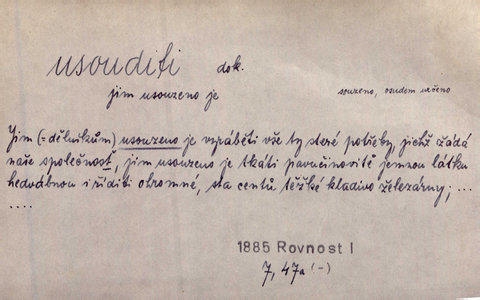 usouditi dok.
jim usouzeno je souzeno, osudem určeno
Jim (= dělníkům) usouzeno je vyráběti vše ty steré potřeby, jichž žádá
naše společnost, jim usouzeno je tkáti pavučinovitě jemnou látku
hedvábnou i říditi ohromné, sta centů těžké kladivo železárny; ...
....
1885 Rovnost I
7, 47a (-)